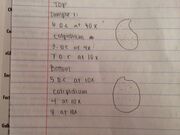 Top
Sample 1:
4 0.C at 40x
Colpidium
3 0.C at 4x
7 0.C at 10x
Bottom:
5 0.C at 10x
Colpidium
4 at 10x
8 at 10x